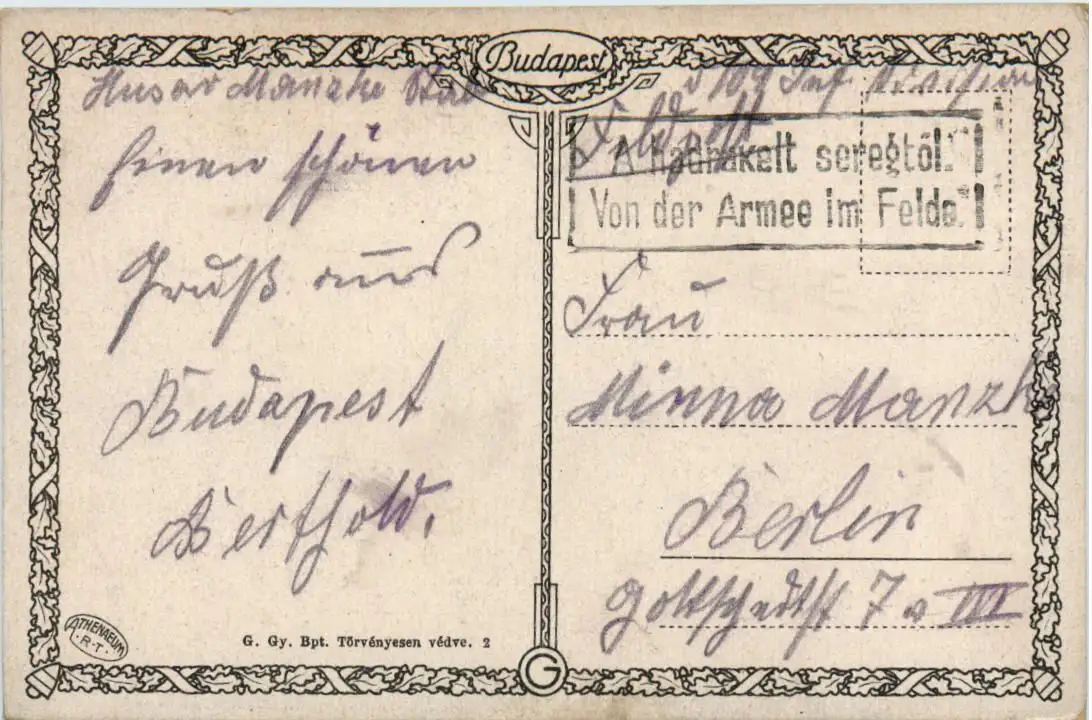 Budapest
Husar Manzke Stab d 109 Inf Division
Feldpost
A hadrakelt seregtől.
Von der Armee im Felde.
Einen schönen
Gruß aus
Budapest
Berthold.
Frau
Minna Manzke
Berlin
Gottschedtst 7 a III
ATHENAEUM
R.T.
G. Gy. Bpt. Törvényesen védve. 2
G